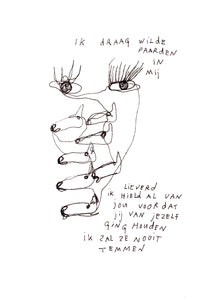 IK DRAAG WILDE
PAARDEN
IN
MIJ
LIEVERD
IK HIELD AL VAN
JOU VOORDAT
JIJ VAN JEZELF
GING HOUDEN
IK ZAL ZE NOOIT
TEMMEN